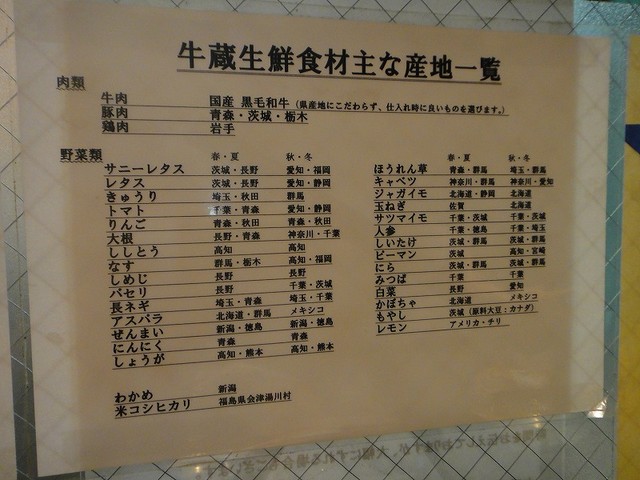 牛蔵生鮮食材主な産地一覧
肉類
牛肉 国産 黒毛和牛(県産地にこだわらず、仕入れ時に良いものを選びます。)
豚肉 青森・茨城・栃木
鶏肉 岩手
野菜類 春・夏 秋・冬
サニーレタス 茨城・長野 愛知・福岡
レタス 茨城・長野 愛知・静岡
きゅうり 埼玉・秋田 群馬
トマト 千葉・青森 愛知・静岡
りんご 青森・秋田 青森・秋田
大根 長野・青森 神奈川・千葉
ししとう 高知 高知
なす 群馬・栃木 高知・福岡
しめじ 長野 長野
パセリ 長野 千葉・茨城
長ネギ 埼玉・青森 埼玉・千葉
アスパラ 北海道・群馬 メキシコ
ぜんまい 新潟・徳島 新潟・徳島
にんにく 青森 青森
しょうが 高知・熊本 高知・熊本
春・夏 秋・冬
ほうれん草 青森・群馬 埼玉・群馬
キャベツ 神奈川・群馬 神奈川・愛知
ジャガイモ 北海道・静岡 北海道
玉ねぎ 佐賀 北海道
サツマイモ 千葉・茨城 千葉・茨城
人参 千葉・徳島 千葉・埼玉
しいたけ 茨城・群馬 茨城・群馬
ピーマン 茨城 高知・宮崎
にら 茨城・群馬 茨城・群馬
みつば 千葉 千葉
白菜 長野 愛知
かぼちゃ 北海道 メキシコ
もやし 茨城(原料大豆:カナダ)
レモン アメリカ・チリ
わかめ 新潟
米コシヒカリ 福島県会津湯川村